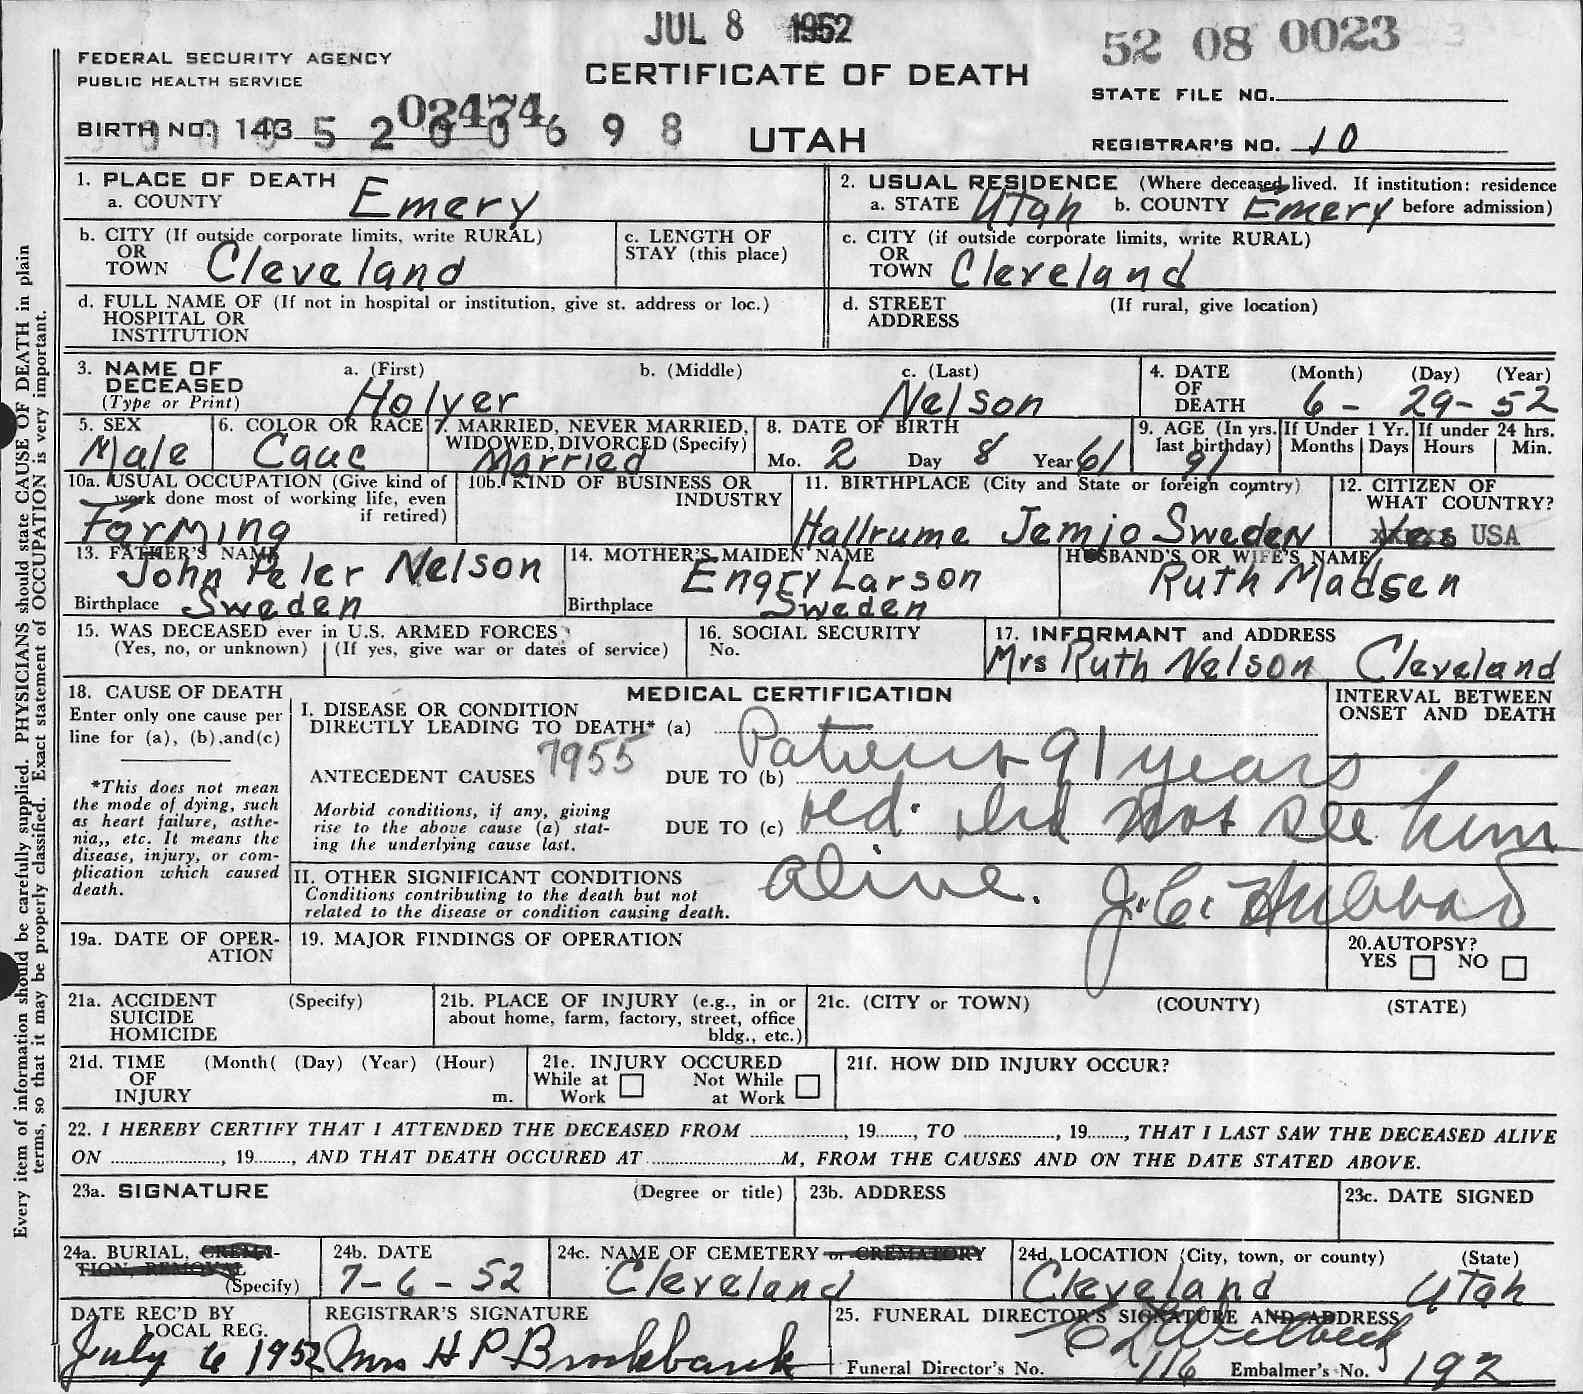 JUL 8 1952
52 08 0023
FEDERAL SECURITY AGENCY
PUBLIC HEALTH SERVICE
CERTIFICATE OF DEATH
STATE FILE NO.
BIRTH NO. 143
02474
5 2 0 0 6 9 8
UTAH
REGISTRAR'S NO. 10
1. PLACE OF DEATH
a. COUNTY Emery
2. USUAL RESIDENCE (Where deceased lived. If institution: residence
a. STATE Utah b. COUNTY Emery before admission)
b. CITY (If outside corporate limits, write RURAL)
OR
TOWN Cleveland
c. LENGTH OF
STAY (this place)
c. CITY (if outside corporate limits, write RURAL)
OR
TOWN Cleveland
d. FULL NAME OF (If not in hospital or institution, give st. address or loc.)
HOSPITAL OR
INSTITUTION
d. STREET (If rural, give location)
ADDRESS
3. NAME OF
DECEASED
(Type or Print)
a. (First) b. (Middle) c. (Last)
Holyer Nelson
4. DATE
OF
DEATH
(Month) (Day) (Year)
6 - 29 - 52
5. SEX
Male
6. COLOR OR RACE
Cauc
7. MARRIED, NEVER MARRIED,
WIDOWED, DIVORCED (Specify)
Married
8. DATE OF BIRTH
Mo. 2 Day 8 Year 61
9. AGE (In yrs.
last birthday)
91
If Under 1 Yr.
Months Days
If under 24 hrs.
Hours Min.
10a. USUAL OCCUPATION (Give kind of
work done most of working life, even
if retired)
Farming
10b. KIND OF BUSINESS OR
INDUSTRY
11. BIRTHPLACE (City and State or foreign country)
Hallrume Jemjo Sweden
12. CITIZEN OF
WHAT COUNTRY?
Yes USA
13. FATHER'S NAME
John Peter Nelson
Birthplace Sweden
14. MOTHER'S MAIDEN NAME
Engry Larson
Birthplace Sweden
HUSBAND'S OR WIFE'S NAME
Ruth Madsen
15. WAS DECEASED ever in U.S. ARMED FORCES?
(Yes, no, or unknown) (If yes, give war or dates of service)
16. SOCIAL SECURITY
No.
17. INFORMANT and ADDRESS
Mrs Ruth Nelson Cleveland
18. CAUSE OF DEATH
Enter only one cause per
line for (a), (b),and(c)
*This does not mean
the mode of dying, such
as heart failure, asthe-
nia,, etc. It means the
disease, injury, or com-
plication which caused
death.
MEDICAL CERTIFICATION
I. DISEASE OR CONDITION
DIRECTLY LEADING TO DEATH* (a)
7955
ANTECEDENT CAUSES DUE TO (b)
Morbid conditions, if any, giving
rise to the above cause (a) stat-
ing the underlying cause last.
DUE TO (c)
II. OTHER SIGNIFICANT CONDITIONS
Conditions contributing to the death but not
related to the disease or condition causing death.
Patient 91 years
old. did not see him
alive. J. C. Hubbard
INTERVAL BETWEEN
ONSET AND DEATH
19a. DATE OF OPER-
ATION
19. MAJOR FINDINGS OF OPERATION
20.AUTOPSY?
YES NO
21a. ACCIDENT (Specify)
SUICIDE
HOMICIDE
21b. PLACE OF INJURY (e.g., in or
about home, farm, factory, street, office
bldg., etc.)
21c. (CITY or TOWN) (COUNTY) (STATE)
21d. TIME (Month( (Day) (Year) (Hour)
OF
INJURY m.
21e. INJURY OCCURED
While at Not While
Work at Work
21f. HOW DID INJURY OCCUR?
22. I HEREBY CERTIFY THAT I ATTENDED THE DECEASED FROM ................, 19......., TO ................, 19......., THAT I LAST SAW THE DECEASED ALIVE
ON ................, 19......, AND THAT DEATH OCCURED AT ....................M, FROM THE CAUSES AND ON THE DATE STATED ABOVE.
23a. SIGNATURE (Degree or title)
23b. ADDRESS
23c. DATE SIGNED
24a. BURIAL, CREMA-
TION, REMOVAL
(Specify)
24b. DATE
7-6-52
24c. NAME OF CEMETERY or CREMATORY
Cleveland
24d. LOCATION (City, town, or county) (State)
Cleveland Utah
DATE REC'D BY
LOCAL REG.
July 6 1952
REGISTRAR'S SIGNATURE
Mrs H P Brockbank
25. FUNERAL DIRECTOR'S SIGNATURE AND ADDRESS
Funeral Director's No. 116 Embalmer's No. 192
Every item of information should be carefully supplied. PHYSICIANS should state CAUSE OF DEATH in plain
terms, so that it may be properly classified. Exact statement of OCCUPATION is very important.